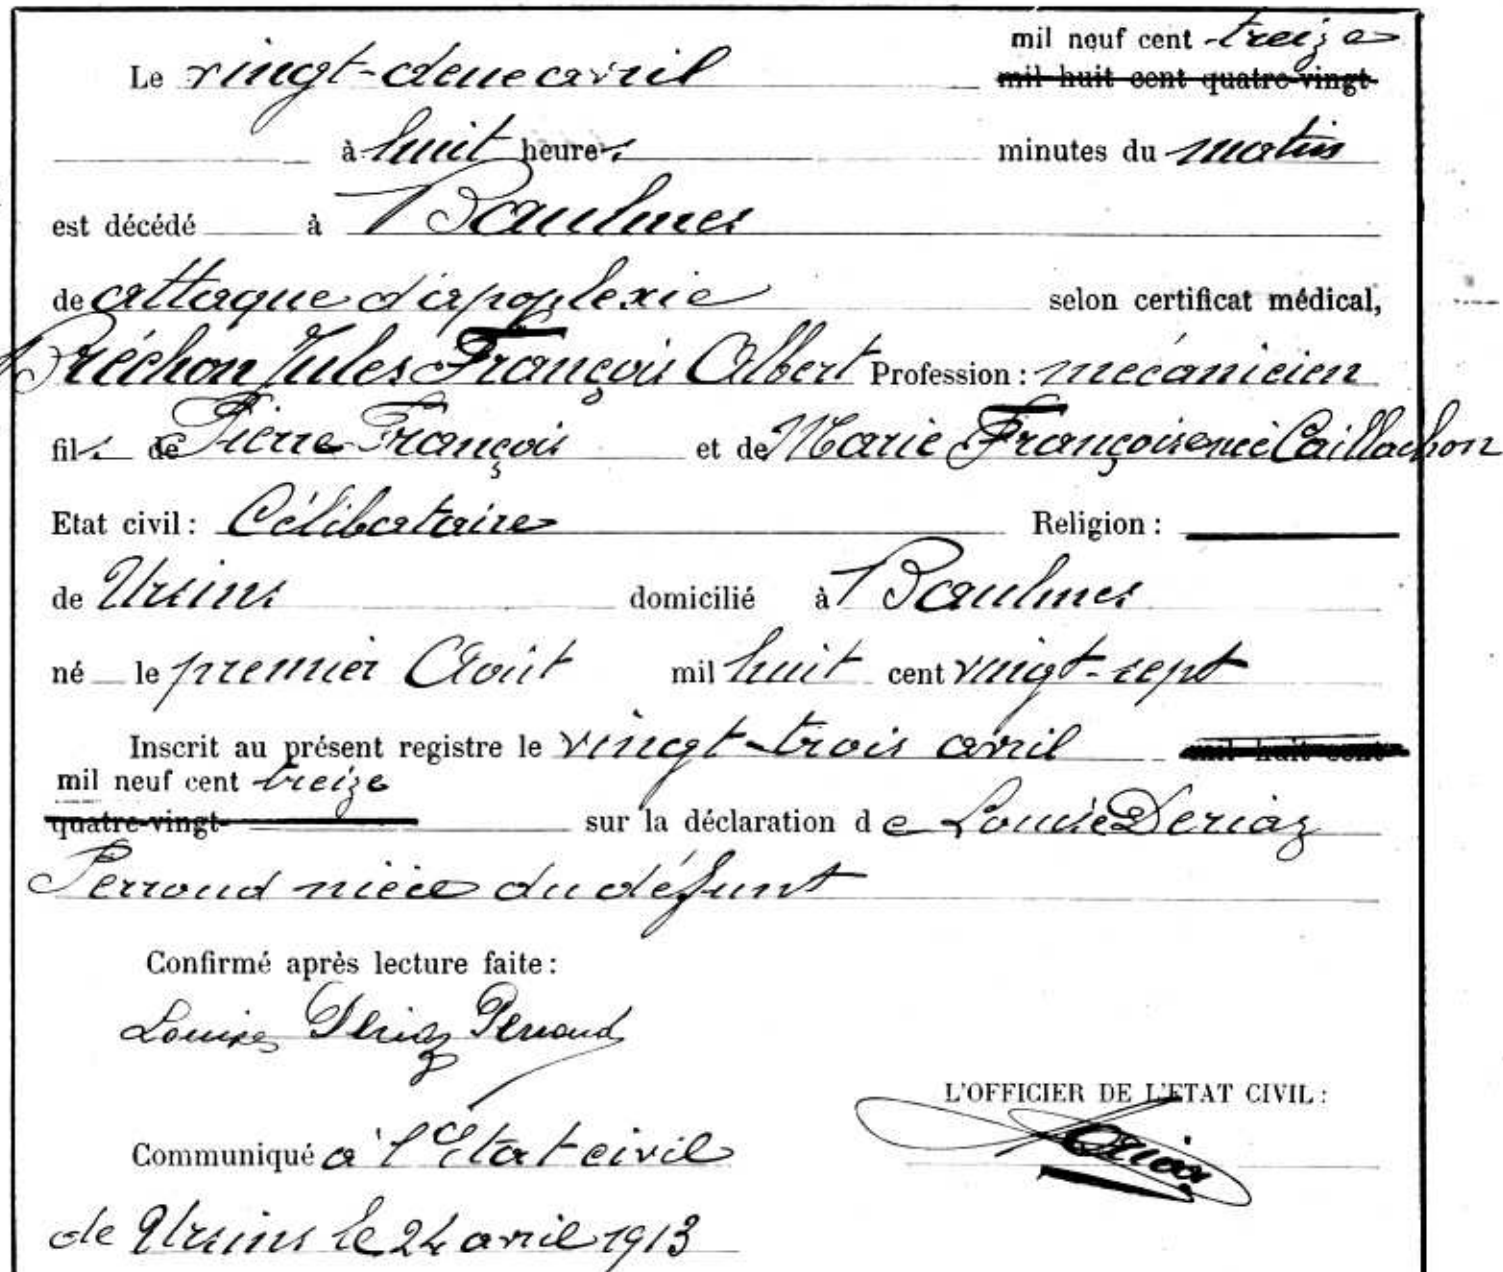 mil neuf cent treize
Le vingt-deux avril mil huit cent quatre-vingt-
à huit heures minutes du matin
est décédé à Baulmes
de attaque d'apoplexie selon certificat médical,
Bréchon Jules François Albert Profession : mécanicien
fils de Pierre François et de Marie Françoise née Caillachon
Etat civil : Célibataire Religion :
de Ursins domicilié à Baulmes
né le premier Août mil huit cent vingt-sept
Inscrit au présent registre le vingt-trois avril mil huit cent
mil neuf cent treize
quatre-vingt- sur la déclaration de Louise Deriaz
Perroud nièce du défunt
Confirmé après lecture faite :
Louise Deriaz Perroud
L'OFFICIER DE L'ETAT CIVIL :
Communiqué à l'Etat civil
de Ursins le 24 avril 1913